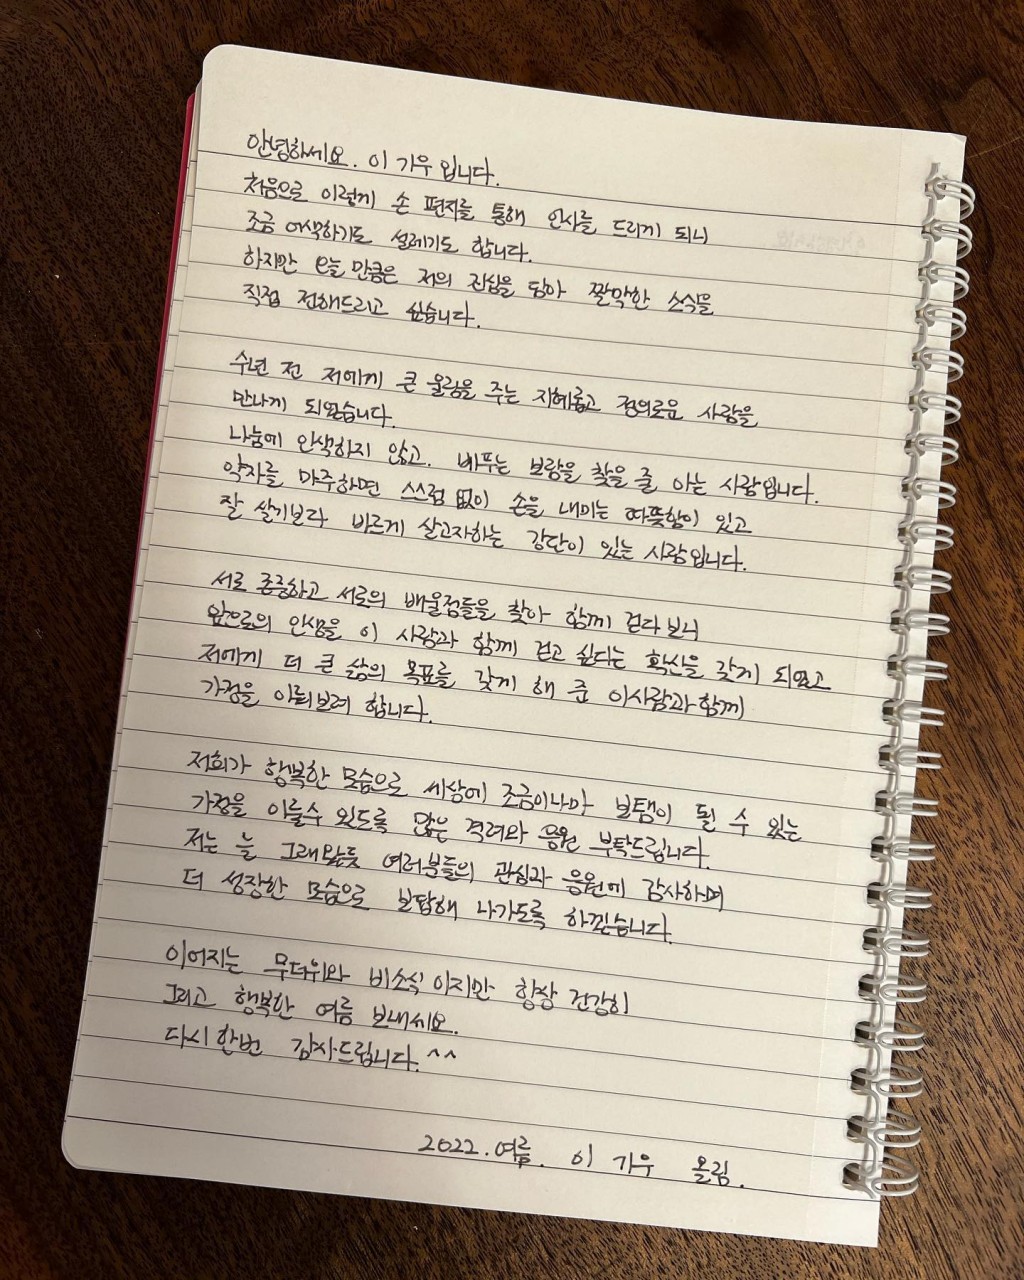 안녕하세요. 이 가우 입니다.
처음으로 이렇게 손 편지를 통해 인사를 드리게 되니
조금 어색하기도 설레기도 합니다.
하지만 오늘 만큼은 저의 진심을 담아 짤막한 소식을
직접 전해드리고 싶습니다.
수년 전 저에게 큰 울림을 주는 지혜롭고 정의로운 사람을
만나게 되었습니다.
나눔에 인색하지 않고. 베푸는 보람을 찾을 줄 아는 사람입니다.
약자를 마주하면 스스럼 없이 손을 내미는 따뜻함이 있고
잘 살기보다 바르게 살고자하는 강단이 있는 사람입니다.
서로 존중하고 서로의 배울점들을 찾아 함께 걷다 보니
앞으로의 인생을 이 사람과 함께 걷고 싶다는 확신을 갖게 되었고
저에게 더 큰 삶의 목표를 갖게 해 준 이사람과 함께
가정을 이뤄보려 합니다.
저희가 행복한 모습으로 세상에 조금이나마 보탬이 될 수 있는
가정을 이룰수 있도록 많은 격려와 응원 부탁드립니다.
저는 늘 그래왔듯 여러분들의 관심과 응원에 감사하며
더 성장한 모습으로 보답해 나가도록 하겠습니다.
이어지는 무더위와 비소식 이지만 항상 건강히
그리고 행복한 여름 보내세요.
다시 한번 감사드립니다.^^
2022.여름. 이 가우 올림.